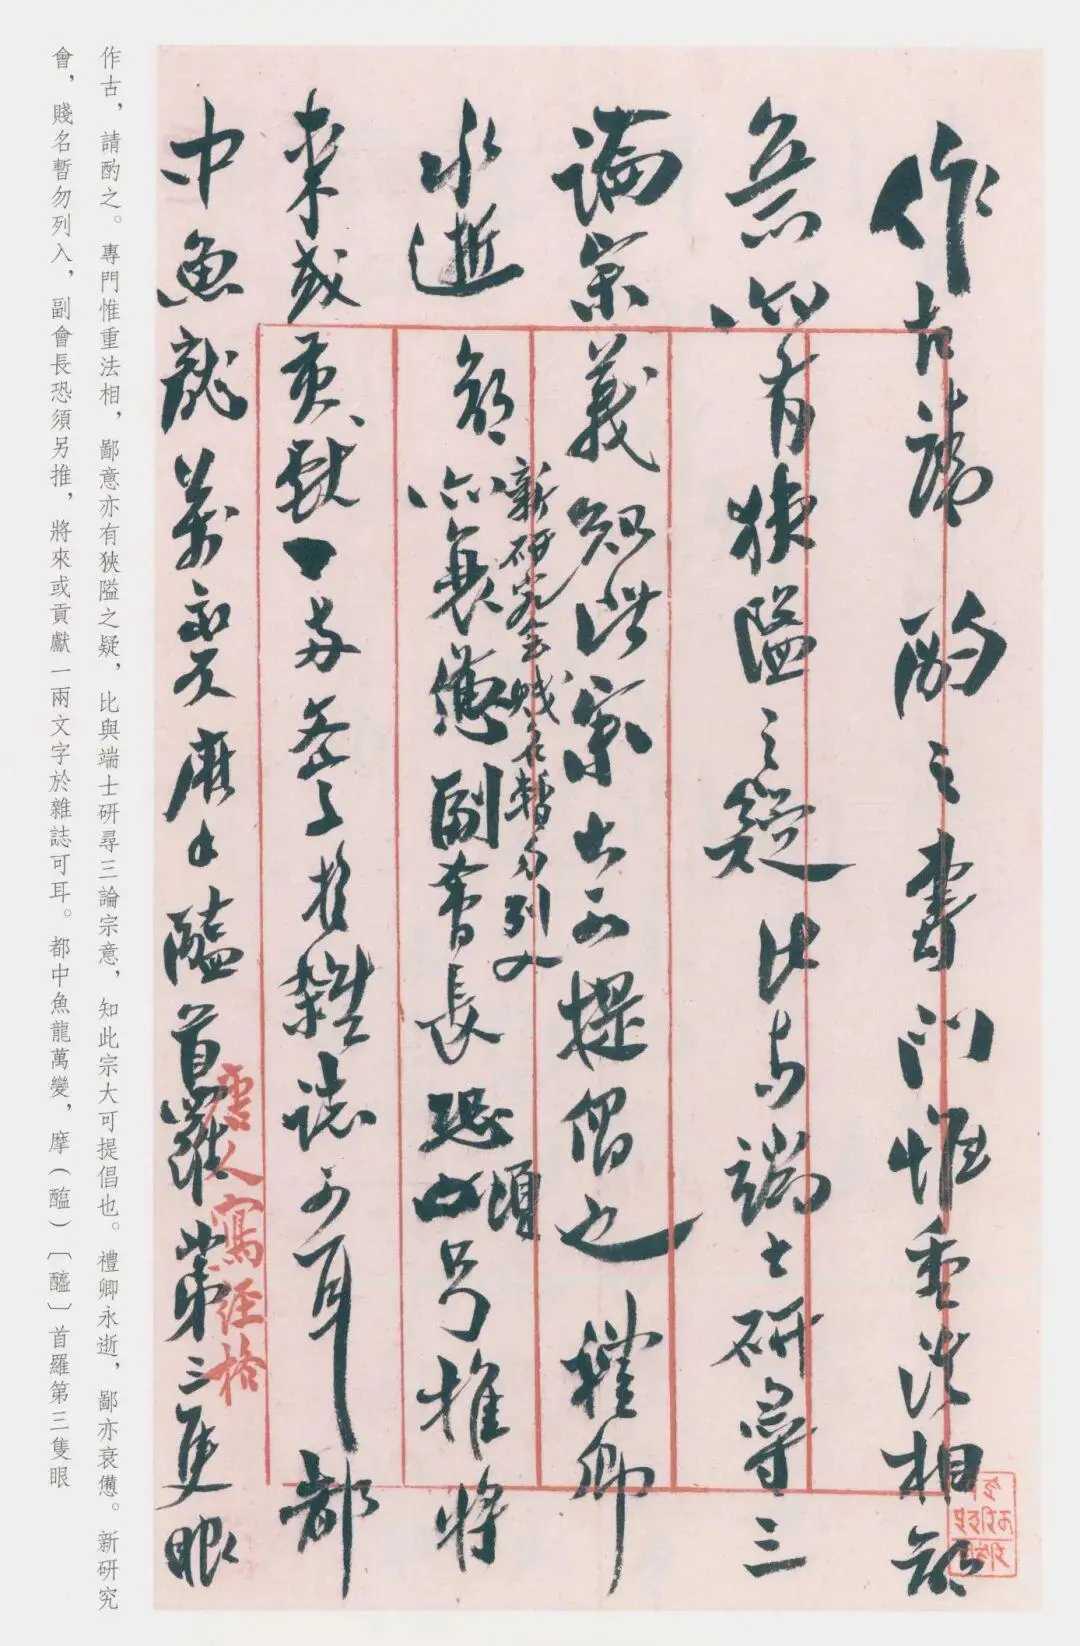 作古請酌之專門惟重法相鄙
意亦有狹隘之疑比與端士研尋三
論宗義知此宗大可提倡也禮卿
永逝鄙亦衰憊副會長恐須另推將
新研究會賤名暫勿列入
來或貢獻一兩文字於雜誌可耳都
中魚龍萬變摩醯首羅第三隻眼
唐人寫經格
作古，請酌之。專門惟重法相，鄙意亦有狹隘之疑，比與端士研尋三論宗意，知此宗大可提倡也。禮卿永逝，鄙亦衰憊。新研究
會，賤名暫勿列入，副會長恐須另推，將來或貢獻一兩文字於雜誌可耳。都中魚龍萬變，摩（醢）〔醯〕首羅第三隻眼